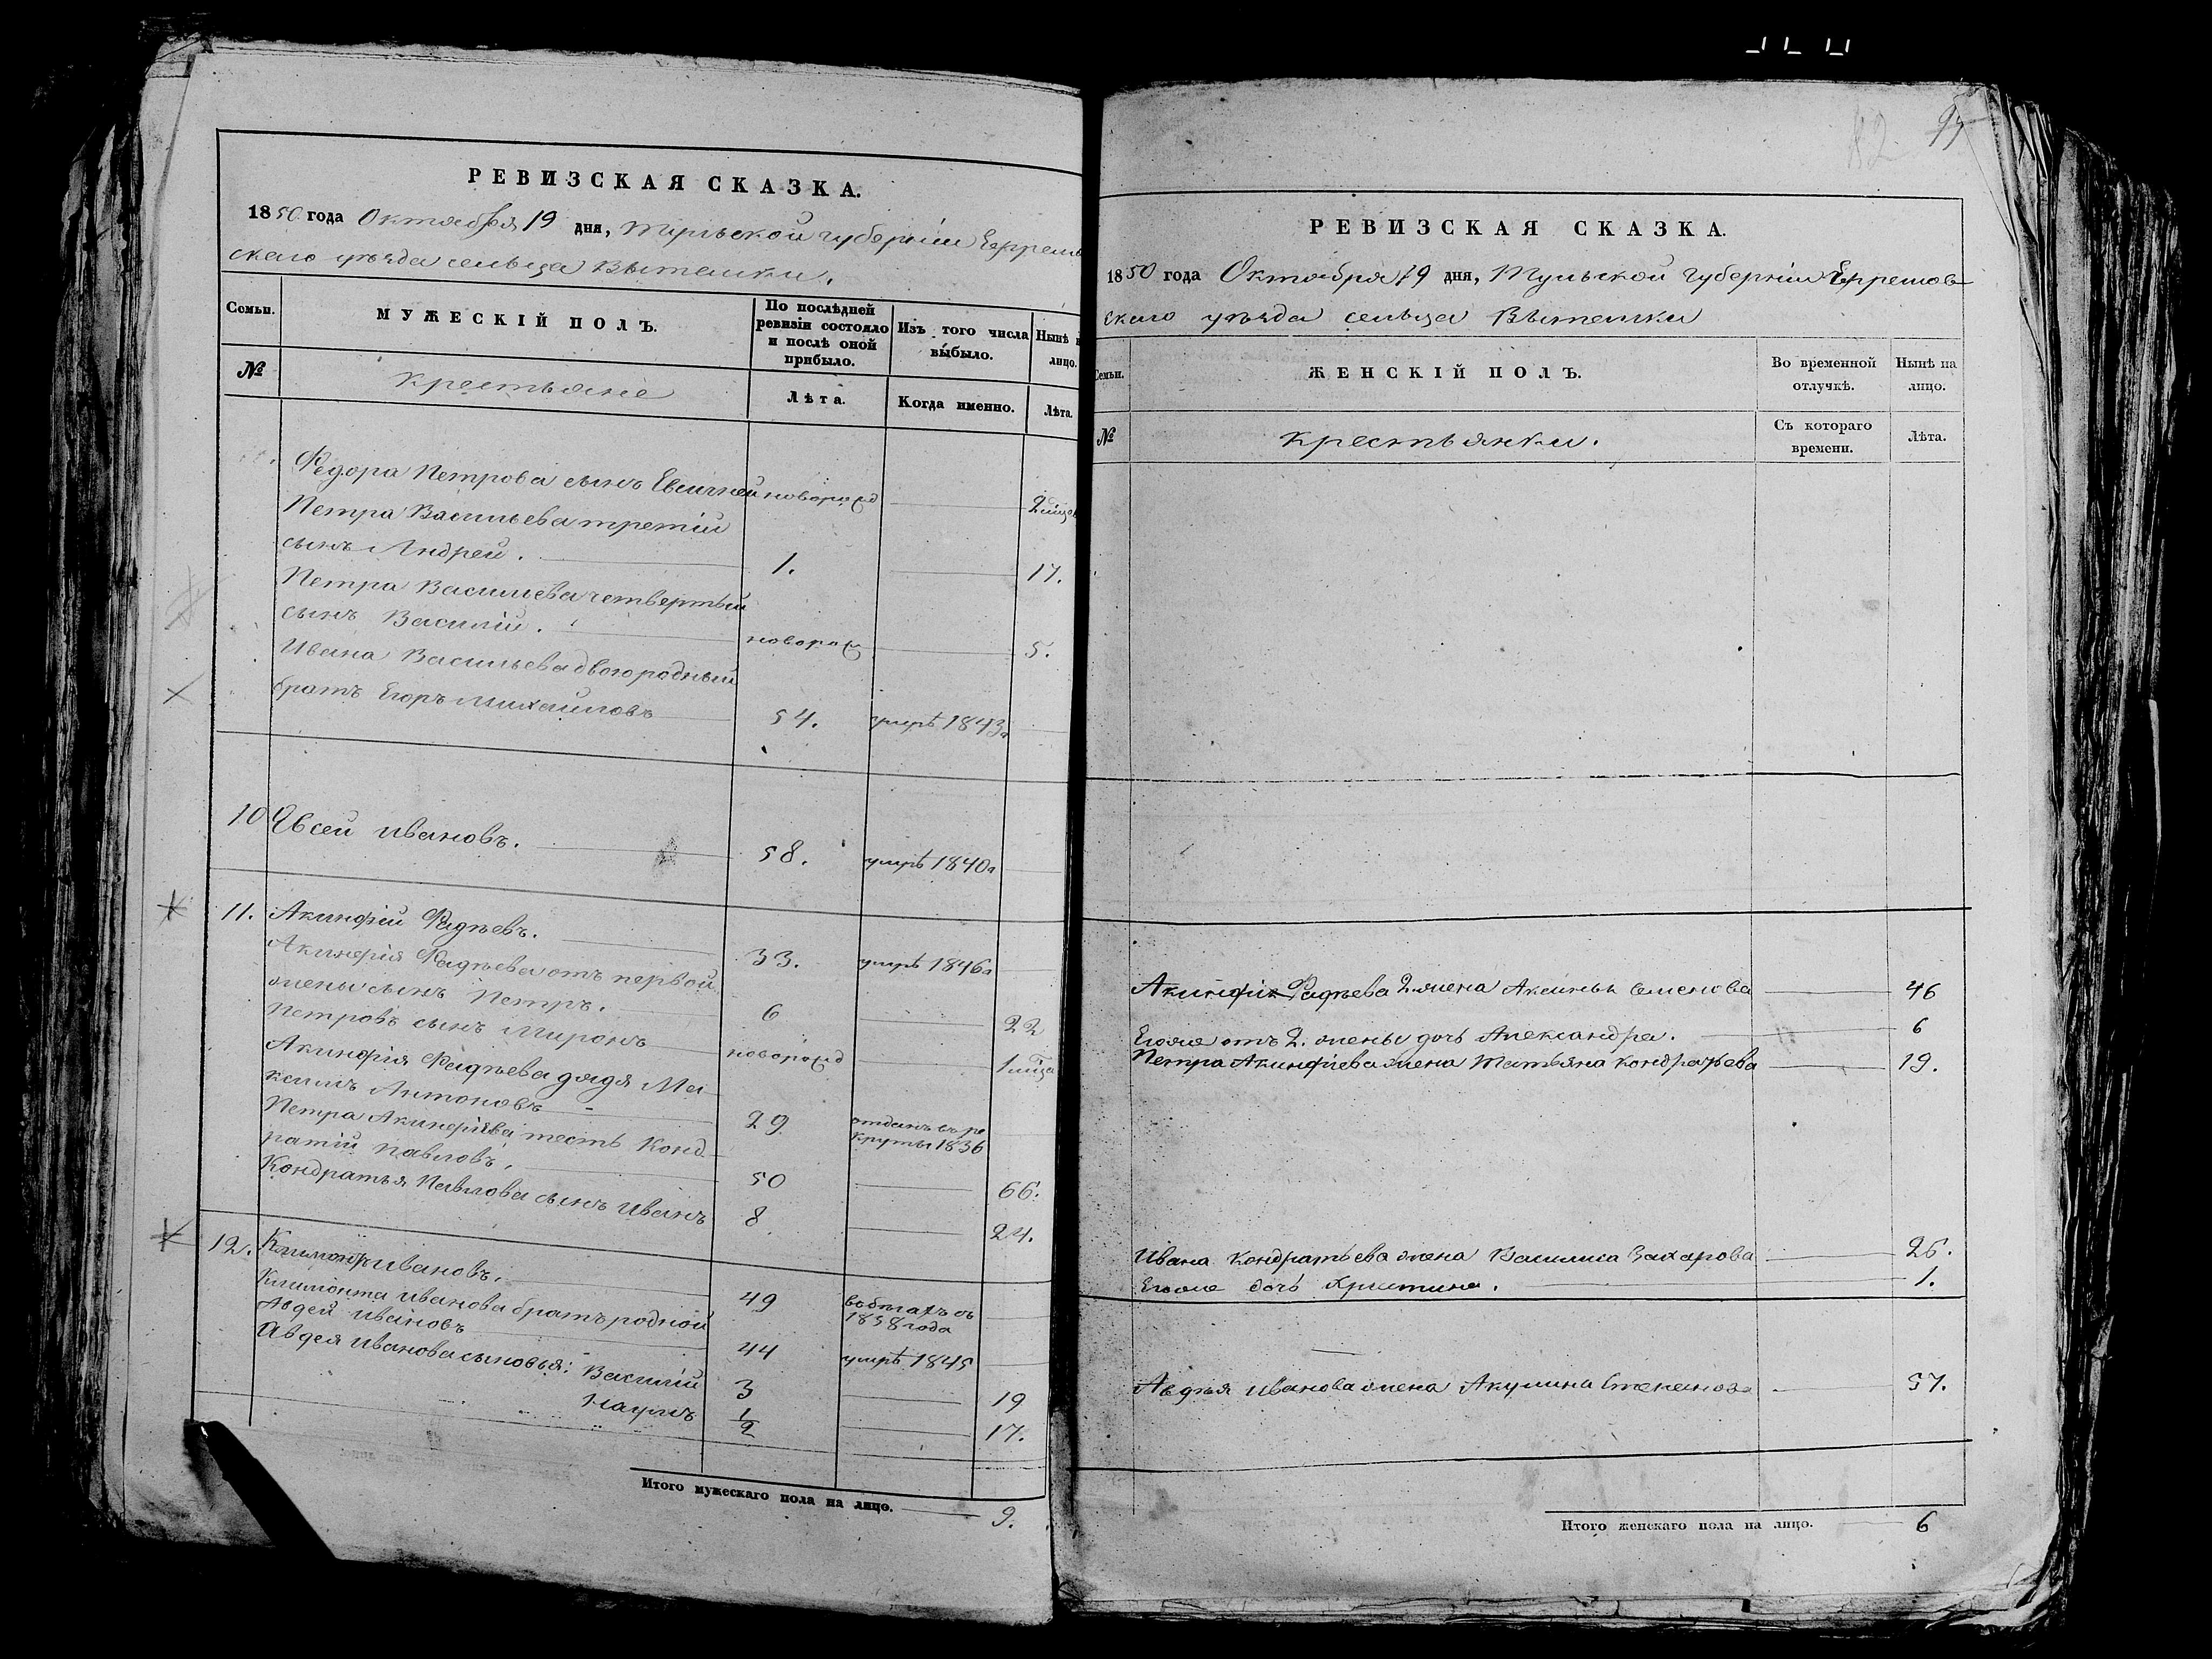 РЕВИЗСКАЯ СКАЗКА.
1850 года Октября 19 дня, Тульской губернiи Ефремов
скаго уѣзда сельца Вытемки.
Семьи.
МУЖЕСКIЙ ПОЛЪ.
По послѣдней ревизiи состояло и послѣ оной прибыло.
Изъ того числа выбыло.
Нынѣ н лицо.
№
Крестьяне
Лѣта.
Когда именно.
Лѣта.
Федора Петрова сынъ новорожд
Петра Васильева третiй
сынъ Андрей. 1. 17.
Петра Васильева четвертый
сынъ Василiй. новорож 5.
Ивана Васильева двоюродный
братъ Егоръ Михайловъ 54. умръ 1843
10 Евсей Ивановъ. 58. умръ 1840
11. Акинфiй Фадѣевъ. 33. умръ 1846
Акинфiя Фадѣева отъ первой
жены сынъ Петръ. 6 22
Петровъ сынъ Миронъ новорожд 1
Акинфiя Фадѣева дядя Ма
ксимъ Антоновъ 29 отданъ въ ре
круты 1836
Петра Акинфiева тесть Конд
ратiй Павловъ. 50 66.
Кондратья Павлова сынъ Иванъ 8 24.
12. Климонтъ Ивановъ. 49 въ бѣгахъ съ
1838 года
Климонта Иванова братъ родной
Авдей Ивановъ 44 умръ 1845
Авдея Иванова сыновья: Василiй 3 19
Наумъ 1/2 17.
Итого мужескаго пола на лицо. 9.
РЕВИЗСКАЯ СКАЗКА.
1850 года Октября 19 дня, Тульской губернiи Ефремов
скаго уѣзда сельца Вытемки
Семьи.
ЖЕНСКIЙ ПОЛЪ.
Во временной отлучкѣ.
Нынѣ на лицо.
№
Крестьянки.
Съ котораго времени.
Лѣта.
Акинфiя Фадѣева 2 жена Аксинья Семенова 46
Егоже отъ 2. жены дочь Александра. 6
Петра Акинфiева жена Татьяна Кондратьева 19.
Ивана Кондратьева жена Василиса Захарова 26.
Егоже дочь Христина. 1.
Авдѣя Иванова жена Акулина Степанова 57.
Итого женскаго пола на лицо. 6